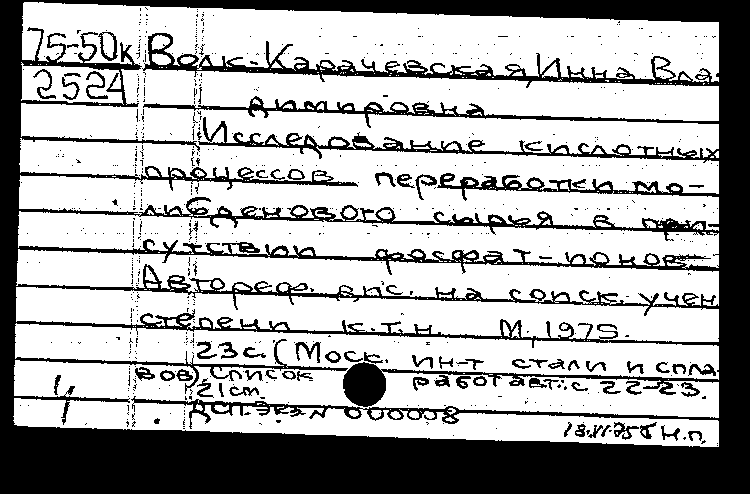 75-50к Волк-Карачевская, Инна Вла-
2524 димировна
Исследование кислотных
процессов переработки мо-
либденового сырья в при-
сутствии фосфат-ионов.
Автореф. дис. на соиск. учен
степени к.т.н. М, 1975.
23 с. (Моск. ин-т стали и спла
вов) Список работ авт.: с 22-23.
21 см.
ДСП. Экз N 000008
Н.П.